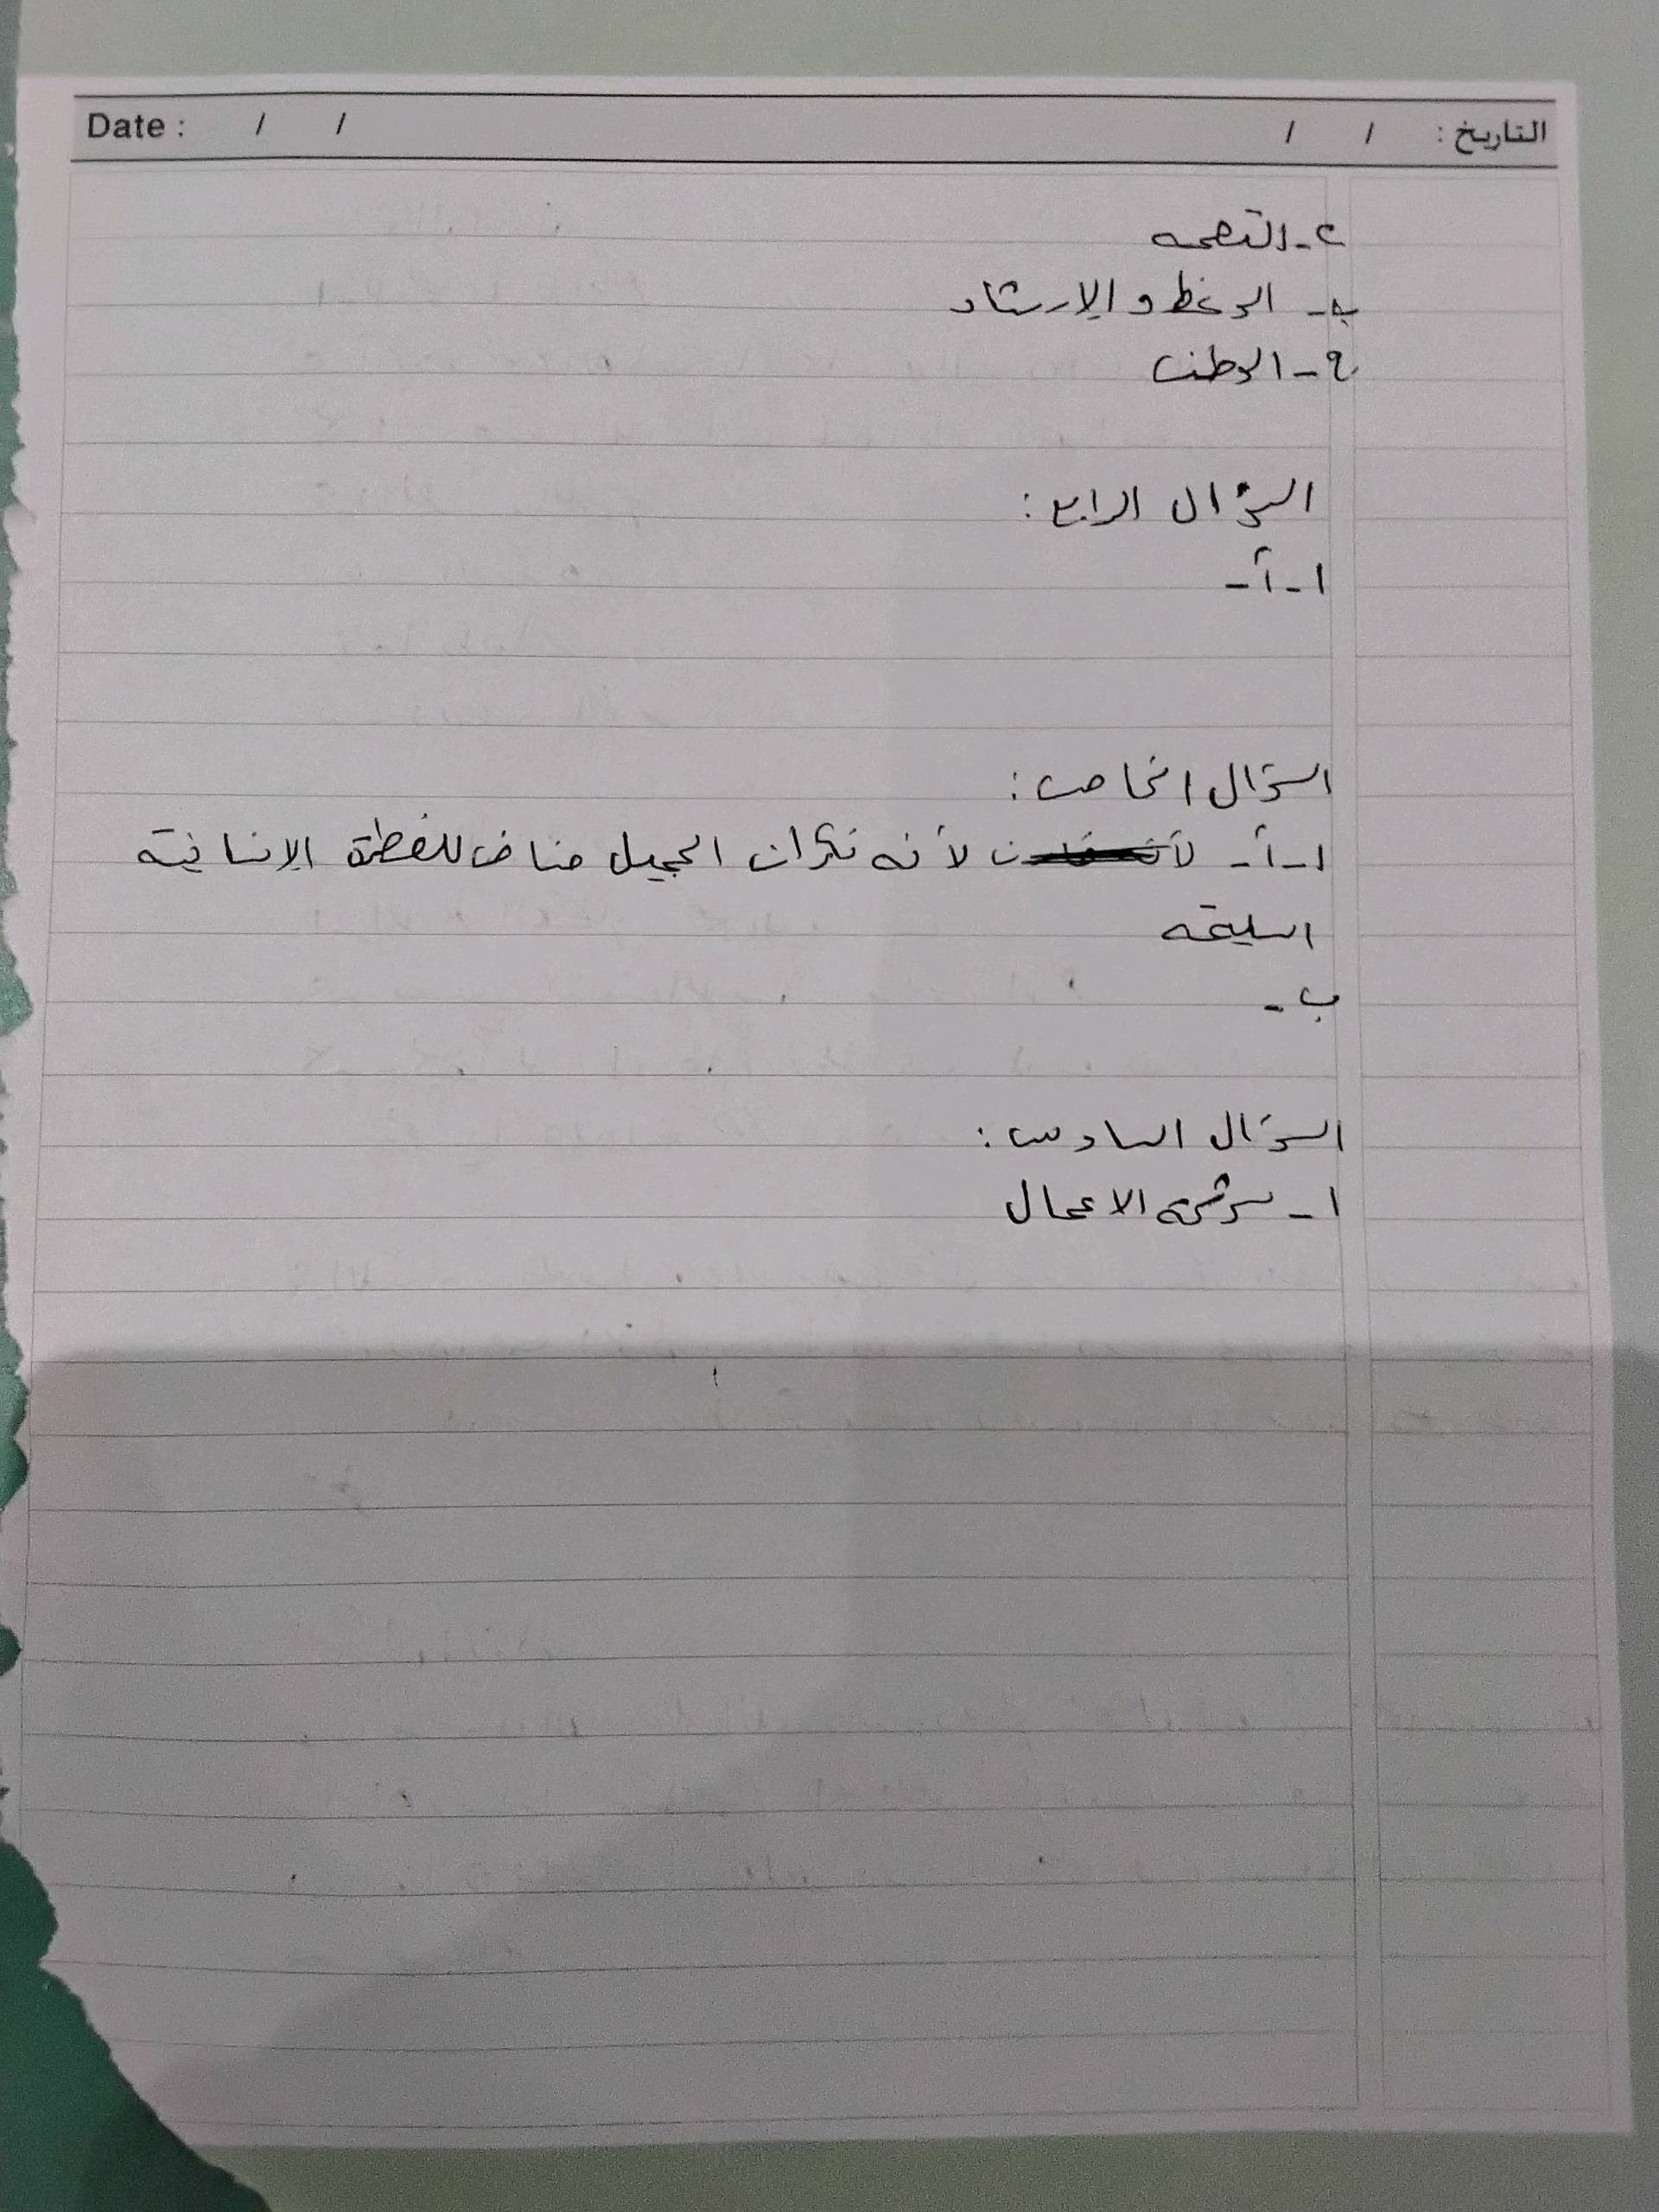 Date : / / التاريخ : / /
ء - التهمه
ب - الوعظ و الإرشاد
ج - الوطن
السؤال الرابع :
١ - أ -
السؤال الخامس :
١ - أ - لأنه نكران الجميل مناف للفطرة الإنسانية
السليمه
ب -
السؤال السادس :
١ - الاعمال